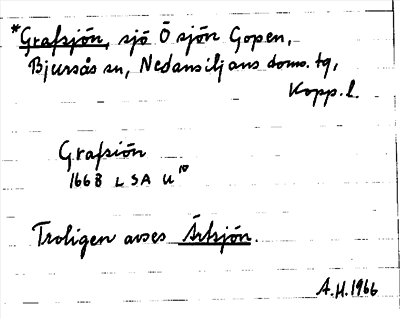 *Grafsjön, sjö Ö sjön Gopen,
Bjursås sn, Nedansiljans doms. tg,
Kopp. l.
Grafsiön
1668 LSA U10
Troligen avses Ärtsjön.
A.H. 1966